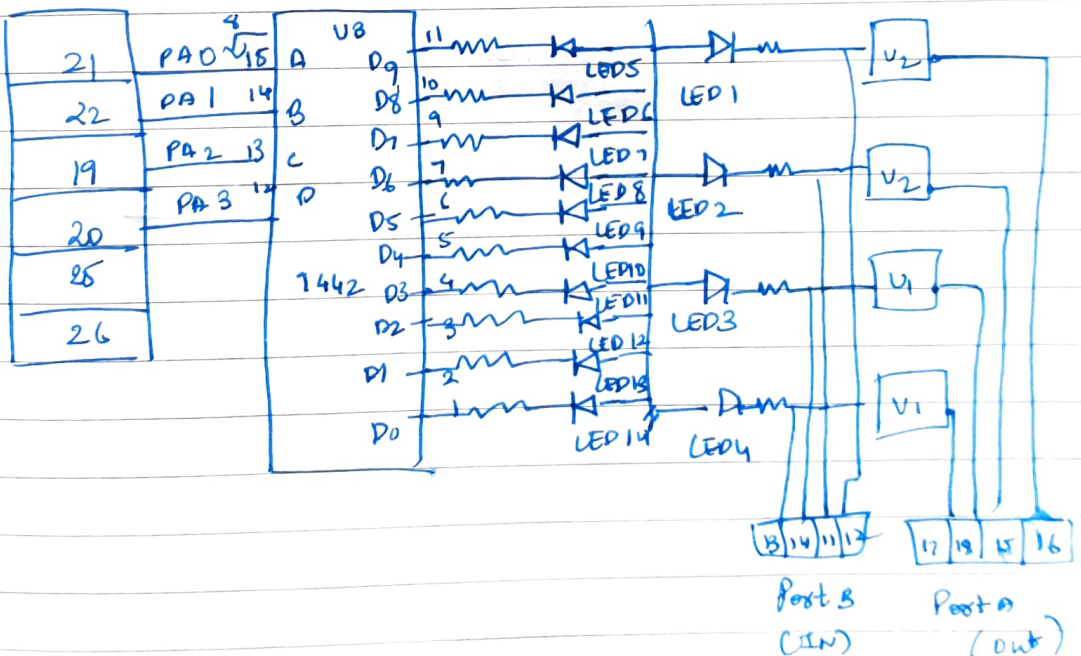 21
22
19
20
25
26
PA0 15
PA1 14
PA2 13
PA3 12
A
B
C
D
U8
7442
D9 11
D8 10
D7 9
D6 7
D5 6
D4 5
D3 4
D2 3
D1 2
D0 1
LED5
LED6
LED7
LED8
LED9
LED10
LED11
LED12
LED13
LED14
LED1
LED2
LED3
LED4
U2
U2
U1
U1
13 14 11 12
17 18 15 16
Port B
(IN)
Port A
(Out)